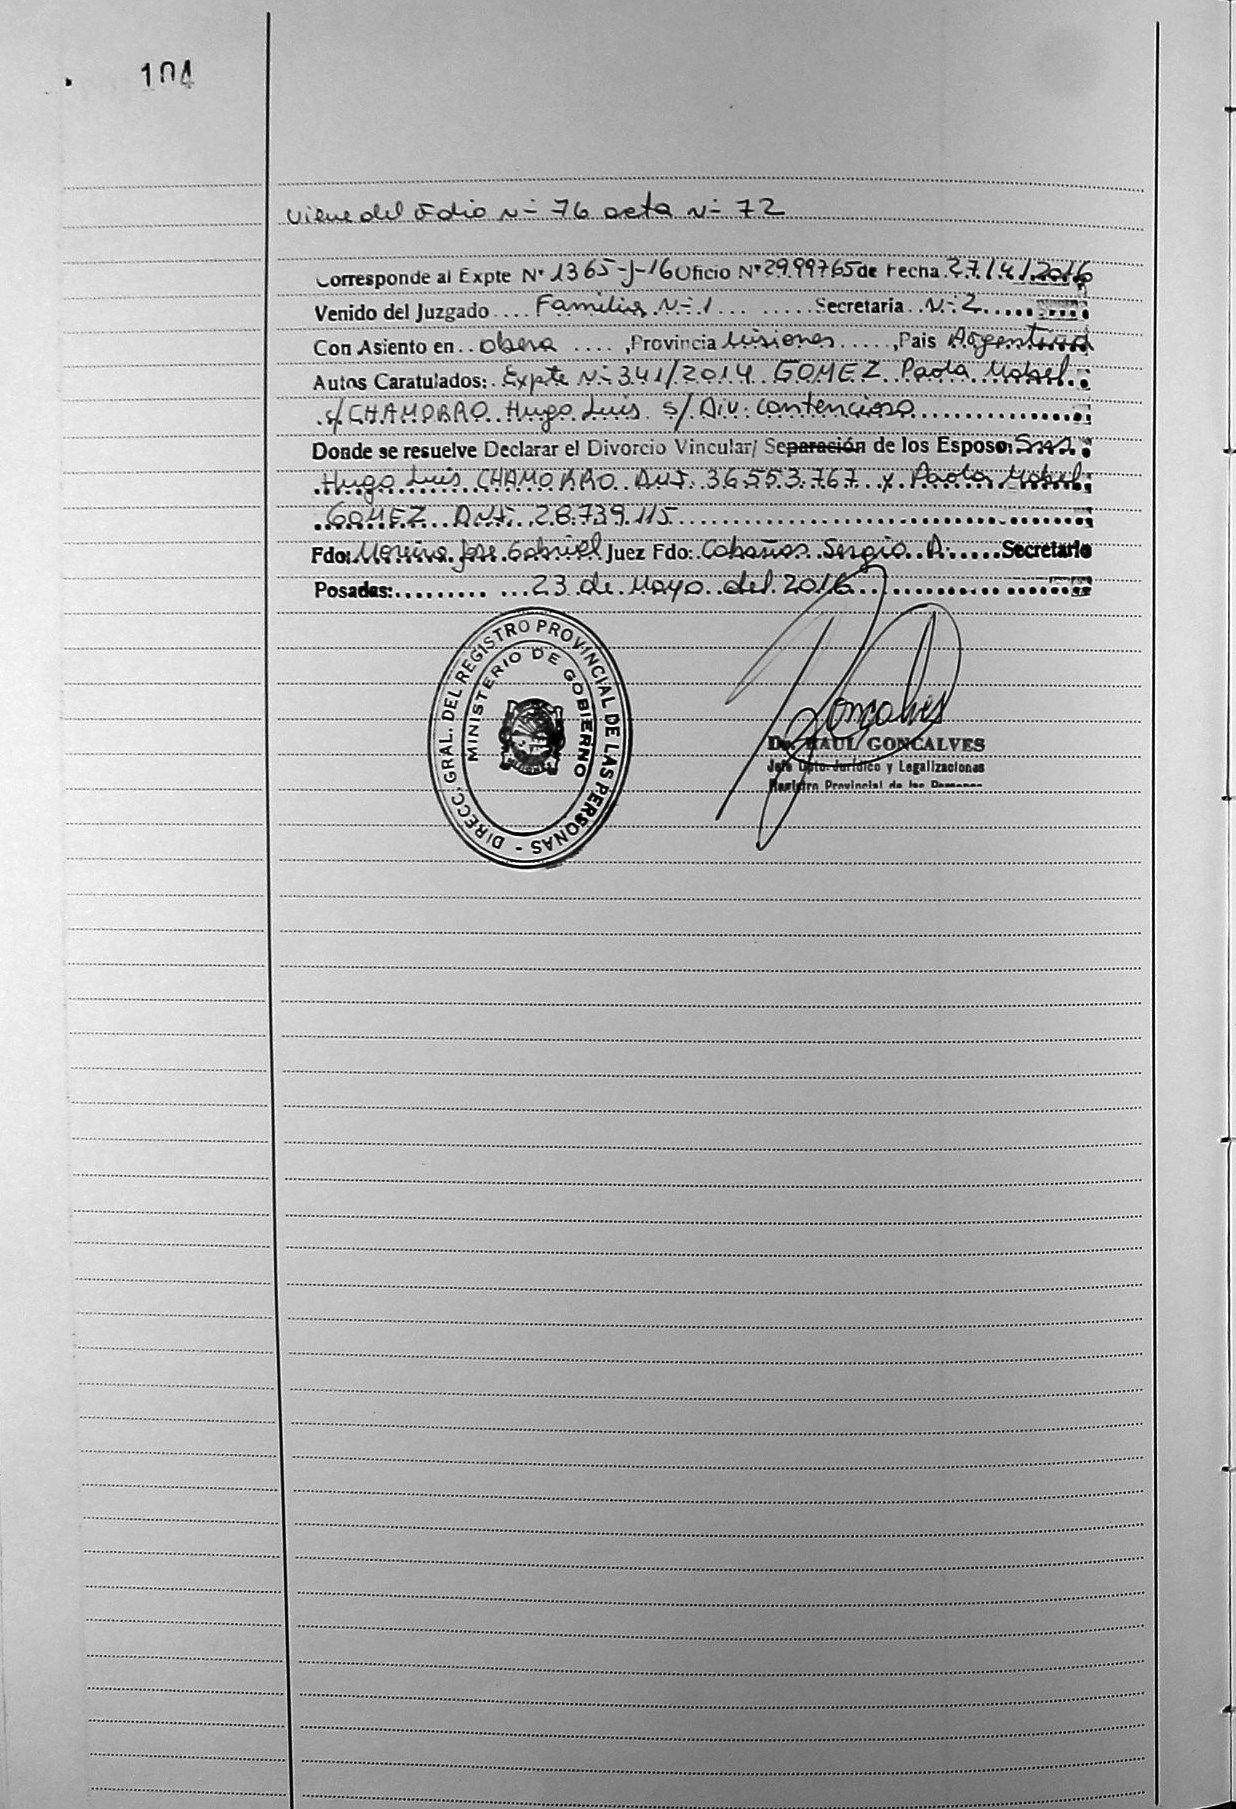 104
Viene del Folio Nº 76 acta Nº 72
Corresponde al Expte Nº 1365-J-16 Oficio Nº 2999765 de Fecha 27/4/2016
Venido del Juzgado .... Familia Nº 1 ... ..... Secretaría .. Nº 2 .....
Con Asiento en .. Obera .... , Provincia Misiones ....., Pais Argentina
Autos Caratulados: Expte Nº 341/2014 GOMEZ Paola Mabel
c/ CHAMORRO Hugo Luis s/ Div. Contencioso
Donde se resuelve Declarar el Divorcio Vincular/ Separación de los Esposo: Sres.
Hugo Luis CHAMORRO DNI. 36.553.767 y Paola Mabel
GOMEZ DNI. 28.739.115
Fdo: Moreira Jose Gabriel Juez Fdo: Cabañas Sergio A. ..... Secretario
Posadas: ......... ... 23 de Mayo del 2016
DIRECC. GRAL. DEL REGISTRO PROVINCIAL DE LAS PERSONAS -
MINISTERIO DE GOBIERNO
MISIONES
Goncalves
Dr. RAUL GONCALVES
Jefe Dpto. Jurídico y Legalizaciones
Registro Provincial de las Personas